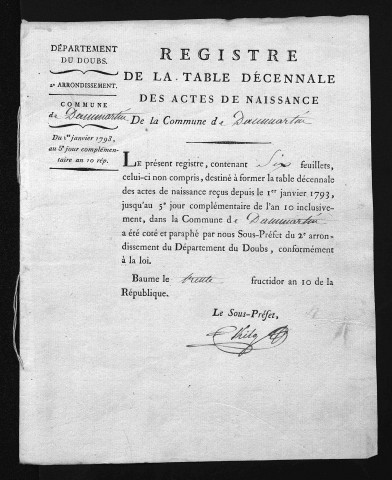 DÉPARTEMENT
DU DOUBS.
2e ARRONDISSEMENT.
COMMUNE
de Dammartin
Du 1er janvier 1793,
au 5e jour complémen-
taire an 10 rép.
REGISTRE
DE LA TABLE DÉCENNALE
DES ACTES DE NAISSANCE
De la Commune de Dammartin
LE présent registre, contenant Six feuillets,
celui-ci non compris, destiné à former la table décennale
des actes de naissance reçus depuis le 1er janvier 1793,
jusqu'au 5e jour complémentaire de l'an 10 inclusive-
ment, dans la Commune de Dammartin
a été coté et paraphé par nous Sous-Préfet du 2e arron-
dissement du Département du Doubs, conformément
à la loi.
Baume le trente fructidor an 10 de la
République.
Le Sous-Préfet,